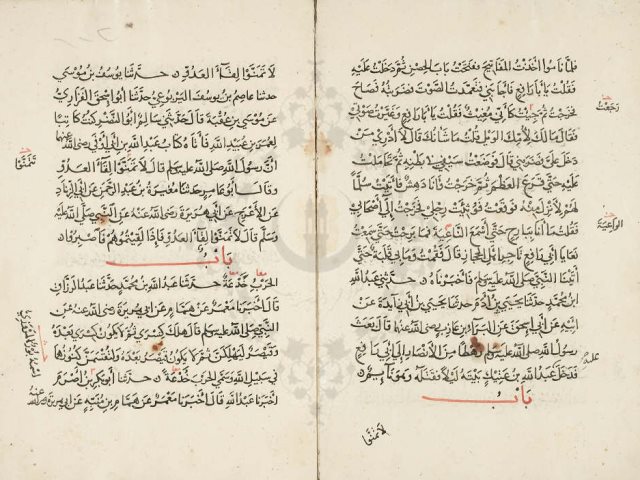 فلما ناموا اخذت المفاتيح ففتحت باب الحصن ثم دخلت عليه
فقلت يا ابا رافع فاجابني فتعمدت الصوت فضربته فصاح
فخرجت ثم جئت كأني مغيث فقلت يا ابا رافع وغيرت صوتي
فقال مالك لأمك الويل قلت ما شانك قال لا أدري من
دخل عليّ فضربني قال فوضعت سيفي في بطنه ثم تحاملت
عليه حتى قرع العظم ثم خرجت وأنا دهش فأتيت سلما
لهم لأنزل منه فوقعت فوثئت رجلي فخرجت إلى أصحابي
فقلت ما أنا ببارح حتى أسمع الناعية فما برحت حتى سمعت
نعايا أبي رافع تاجر اهل الحجاز قال فقمت وما بي قلبة حتى
أتينا النبي صلى الله عليه وسلم فاخبرناه حدثني عبد الله
ابن محمد حدثنا يحيى بن آدم حدثنا يحيى بن أبي زائدة عن
ابيه عن أبي إسحق عن البراء بن عازب رضي الله عنهما قال بعث
رسول الله صلى الله عليه وسلم رهطا من الأنصار إلى أبي رافع
فدخل عبد الله بن عتيك بيته ليلا فقتله وهو نائم
باب
رجعت
الواعية
لا تمنوا
لا تمنوا لقاء العدو حدثنا يوسف بن موسى
حدثنا عاصم بن يوسف اليربوعي حدثنا أبو إسحق الفزاري
عن موسى بن عقبة قال حدثني سالم أبو النضر كنت كاتبا
لعمر بن عبيد الله فأتاه كتاب عبد الله بن أبي أوفى رضي الله عنهما
أن رسول الله صلى الله عليه وسلم قال لا تمنوا لقاء العدو
وقال أبو عامر حدثنا مغيرة بن عبد الرحمن عن أبي الزناد
عن الأعرج عن أبي هريرة رضي الله عنه عن النبي صلى الله عليه
وسلم قال لا تمنوا لقاء العدو فإذا لقيتموهم فاصبروا
باب
الحرب خدعة حدثنا عبد الله بن محمد حدثنا عبد الرزاق
قال اخبرنا معمر عن همام عن ابي هريرة رضي الله عنه عن
النبي صلى الله عليه وسلم قال هلك كسرى ثم لا يكون كسرى بعده
وقيصر ليهلكن ثم لا يكون قيصر بعده ولتقسمن كنوزها
في سبيل الله وسمى الحرب خدعة حدثنا أبو بكر بن اصرم
اخبرنا عبد الله قال اخبرنا معمر عن همام بن منبه عن ابي هريرة رضي الله عنه
تمنوا